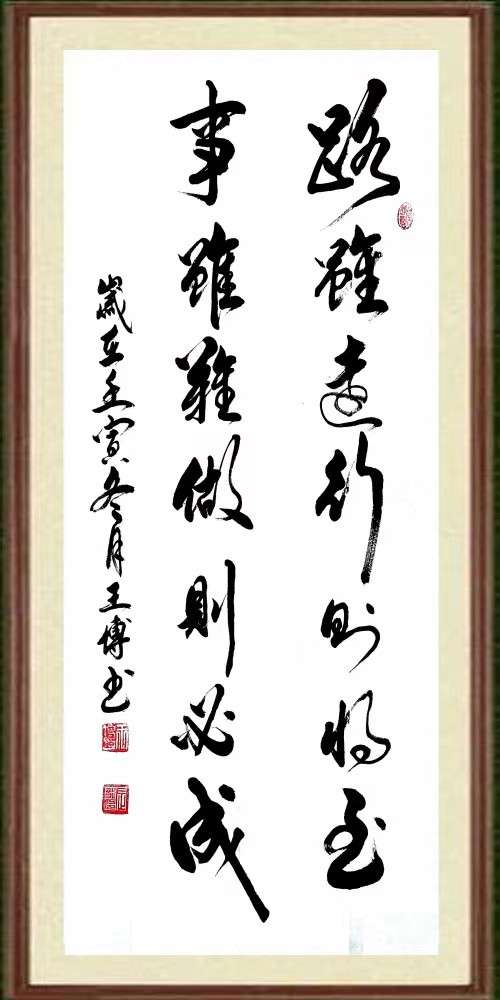 路雖遠行則將至
事雖難做則必成
歲在壬寅冬月王博书